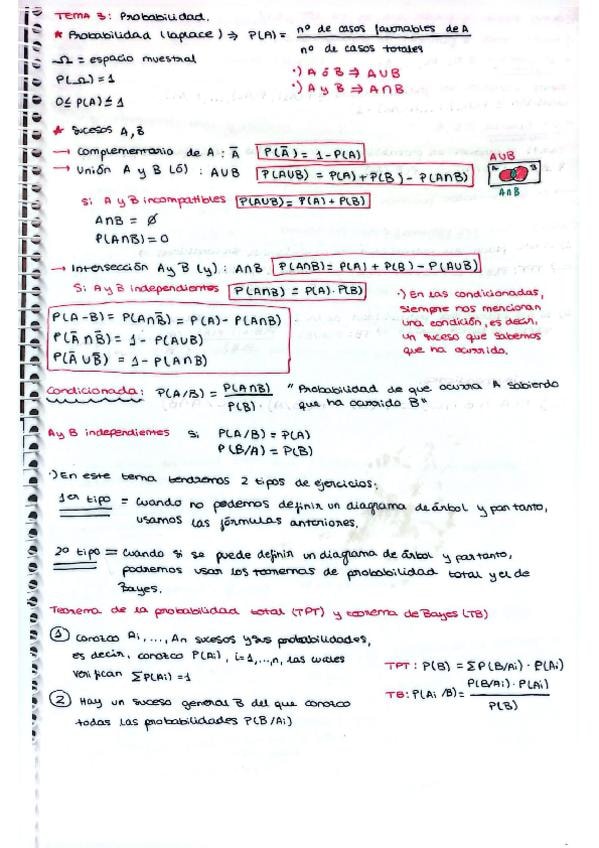 TEMA 3: Probabilidad.
* Probabilidad (laplace) ⇒ P(A) = nº de casos favorables de A / nº de casos totales
Ω = espacio muestral
·) A ó B ⇒ A∪B
P(Ω) = 1
·) A y B ⇒ A∩B
0 ≤ P(A) ≤ 1
* Sucesos A, B
→ Complementario de A : Ā P(Ā) = 1 - P(A)
→ Unión A y B (ó) : A∪B P(A∪B) = P(A) + P(B) - P(A∩B)
A∪B
A B
A∩B
Si A y B incompatibles P(A∪B) = P(A) + P(B)
A∩B = ∅
P(A∩B) = 0
→ Intersección A y B (y) : A∩B P(A∩B) = P(A) + P(B) - P(A∪B)
Si A y B independientes P(A∩B) = P(A)·P(B)
P(A-B) = P(A∩B̄) = P(A) - P(A∩B)
P(Ā∩B̄) = 1 - P(A∪B)
P(Ā∪B̄) = 1 - P(A∩B)
·) En las condicionadas,
siempre nos mencionan
una condición, es decir,
un suceso que sabemos
que ha ocurrido.
Condicionada: P(A/B) = P(A∩B) / P(B) · "Probabilidad de que ocurra A sabiendo
que ha ocurrido B"
A y B independientes si P(A/B) = P(A)
P(B/A) = P(B)
·) En este tema tendremos 2 tipos de ejercicios:
1er tipo = Cuando no podemos definir un diagrama de árbol y por tanto,
usamos las fórmulas anteriores.
2o tipo = Cuando si se puede definir un diagrama de árbol y por tanto,
podremos usar los teoremas de probabilidad total y el de
Bayes.
Teorema de la probabilidad total (TPT) y teorema de Bayes (TB)
① Conozco Ai, ..., An sucesos y sus probabilidades,
es decir, conozco P(Ai), i=1,...,n, las cuales
verifican ΣP(Ai) = 1
② Hay un suceso general B del que conozco
todas las probabilidades P(B/Ai)
TPT : P(B) = ΣP(B/Ai) · P(Ai)
TB : P(Ai/B) = P(B/Ai) · P(Ai) / P(B)